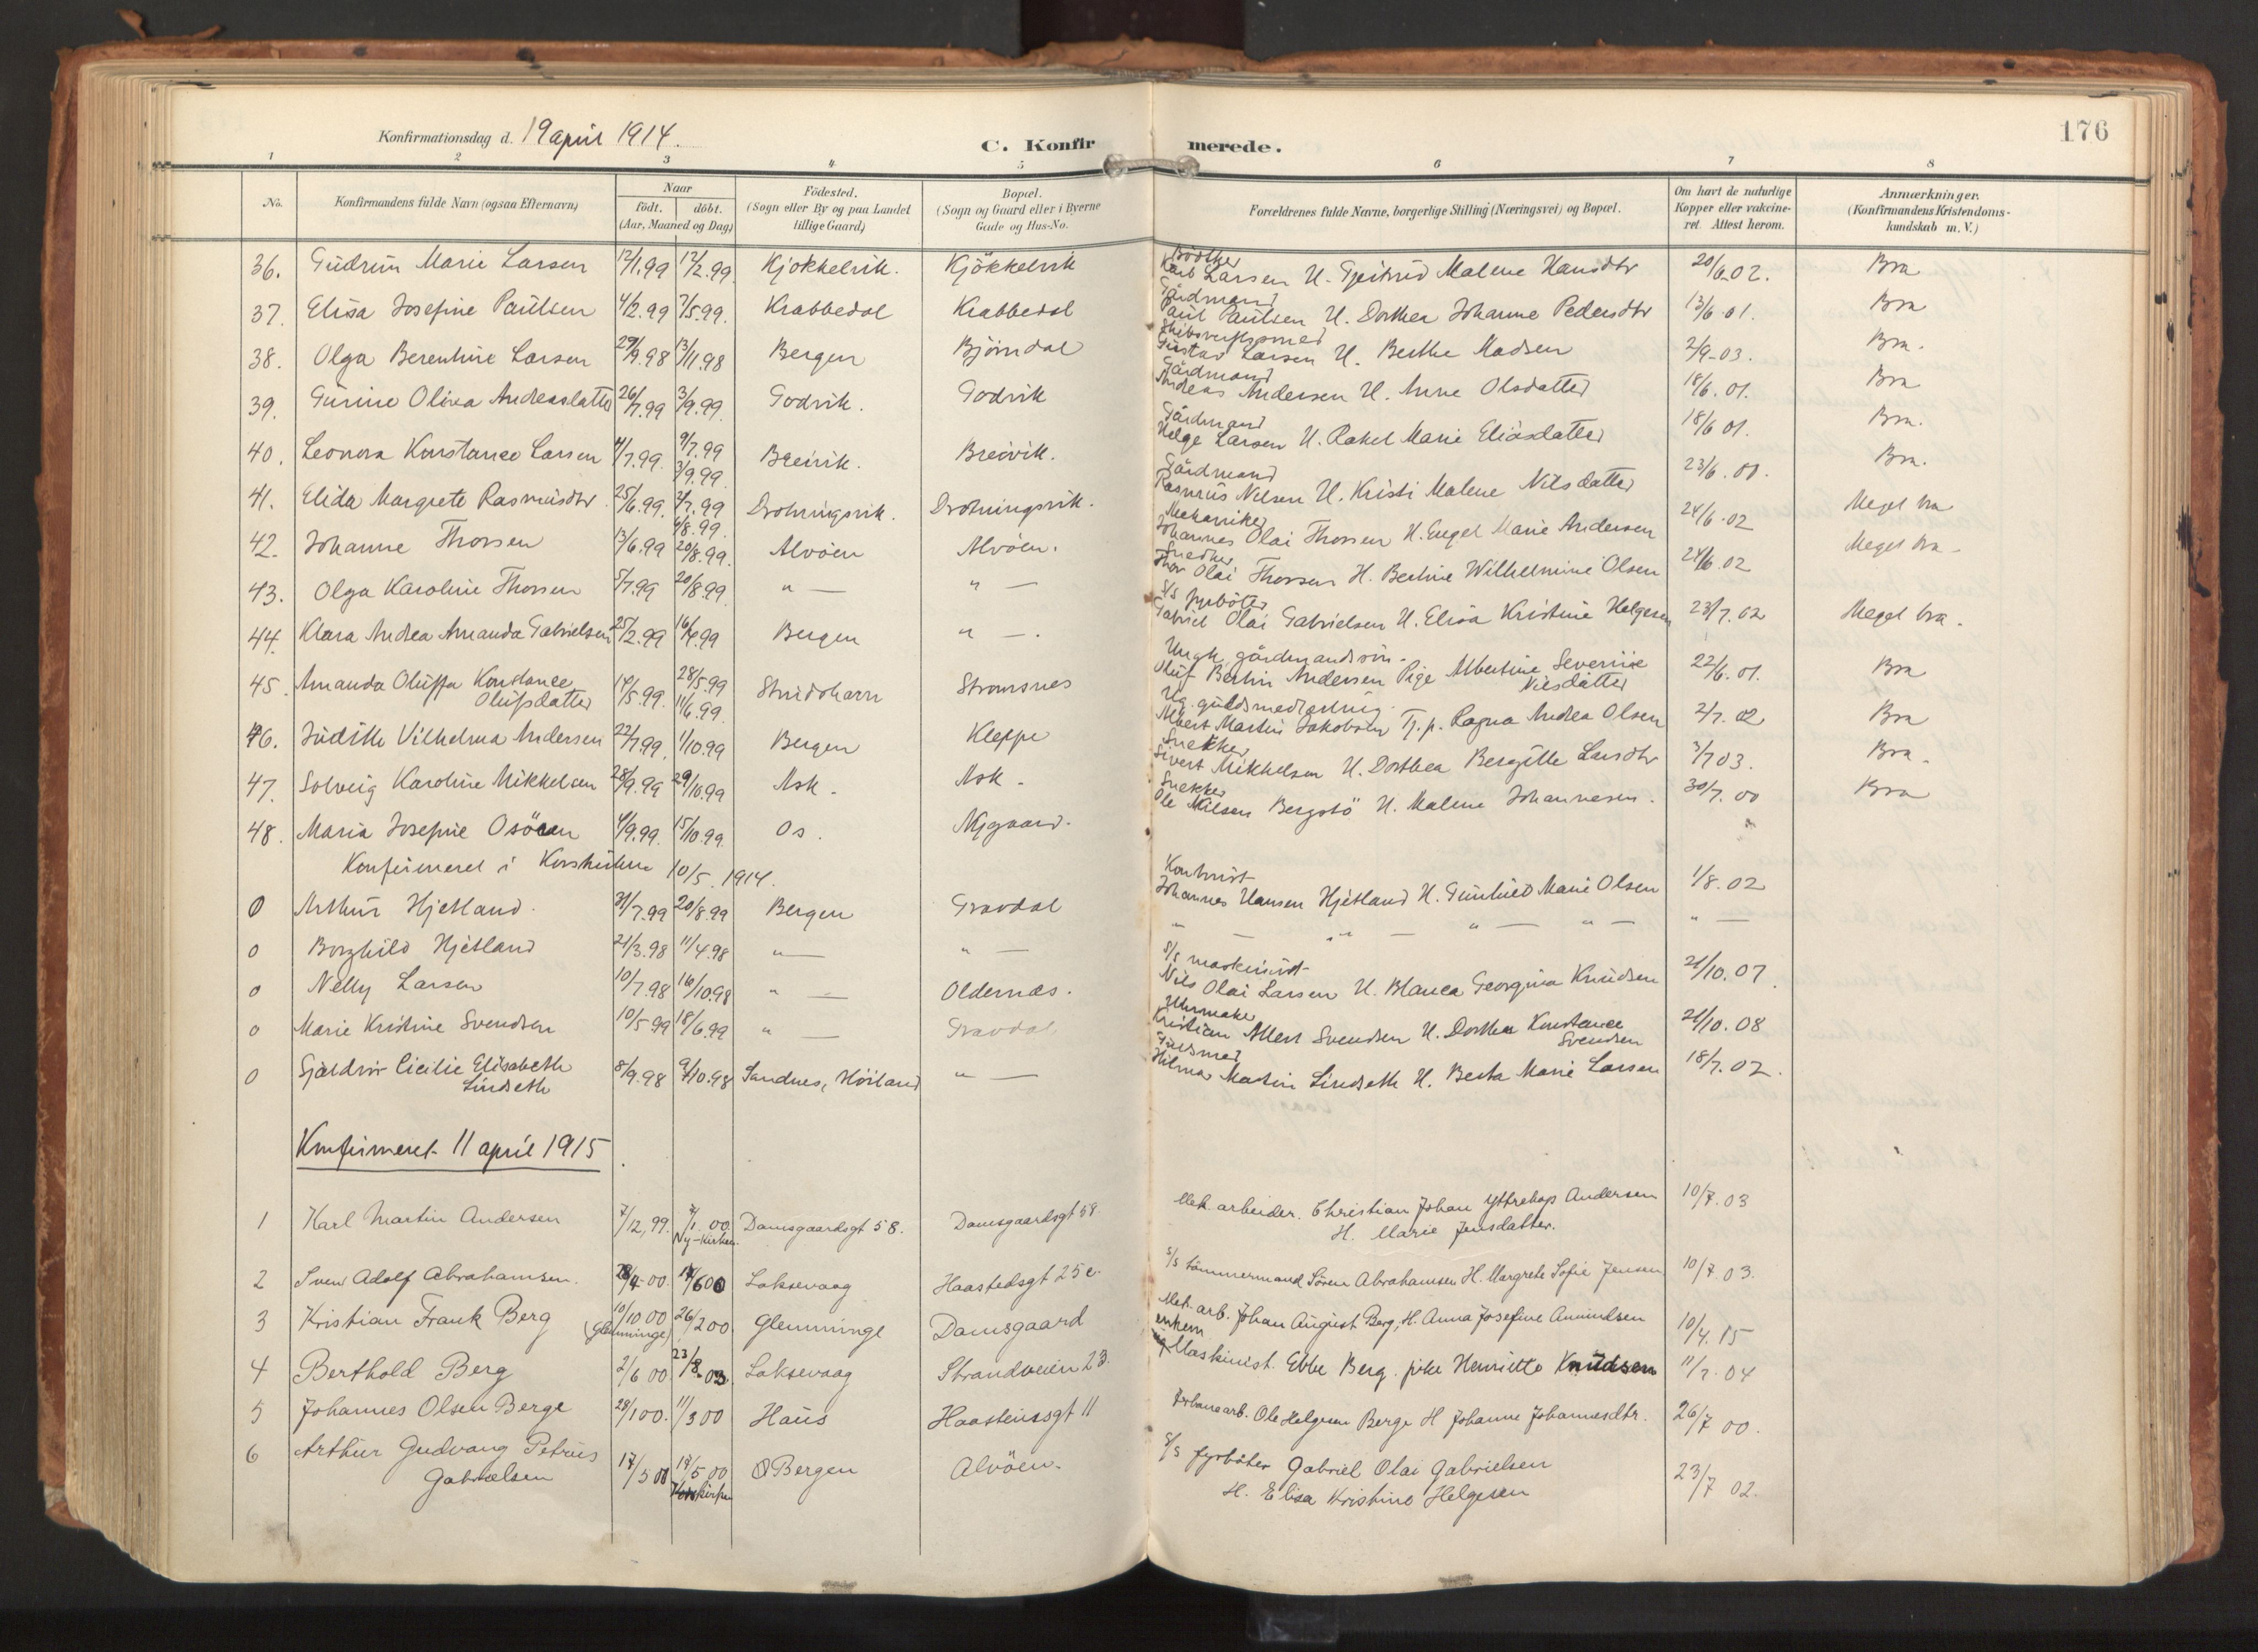 Konfirmationsdag d. 19 april 1914.
C. Konfirmerede.
176
1 2 3 4 5 6 7 8
No.
Konfirmandens fulde Navn (ogsaa Efternavn)
Naar
födt. döbt.
(Aar, Maaned og Dag)
Födested.
(Sogn eller By og paa Landet
tillige Gaard)
Bopæl.
(Sogn og Gaard eller i Byerne
Gade og Hus-No.
Forældrenes fulde Navne, borgerlige Stilling (Næringsvei) og Bopæl.
Om havt de naturlige
Kopper eller vakcine-
ret. Attest herom.
Anmærkninger.
(Konfirmandens Kristendoms-
kundskab m. V.)
Bödtker
36. Gudrun Marie Larsen 12/1.99 12/2.99 Kjökkelvik. Kjökkelvik Larsen H. Gjertrud Malene Hansdtr 20/6.02. Bra
Gårdmand
37. Elisa Josefine Paulsen 4/2.99 7/5.99. Krabbedal Krabbedal Paul Paulsen H. Dorthea Johanne Pedersdtr 13/6.01. Bra
38. Olga Berentine Larsen 29/9.98 13/11.98 Bergen Bjørndal Gustav Larsen H. Berthe Madsen 2/9-03. Bra.
Gårdmand
39. Gurine Olivia Andreasdatter 26/7.99 3/9.99. Godvik. Godvik Andreas Andersen H. Anne Olsdatter 18/6.01. Bra
Gårdmand
40. Leonora Konstance Larsen 4/7.99. 9/7.99 3/9.99 Breivik. Breivik. Helge Larsen H. Rakel Marie Eliasdatter 18/6 01. Bra.
Gårdmand
41. Elida Margrete Rasmusdtr 25/6.99. 2/7.99 6/8.99. Drotningsvik. Drotningsvik. Rasmus Nilsen H. Kristi Malene Nilsdatter 23/6.00. Bra.
Mekaniker
42. Johanne Thorsen 13/6.99 20/8.99. Alvöen Alvöen. Johannes Olai Thorsen H. Engel Marie Andersen 24/6.02 Meget bra
Snedker
43. Olga Karoline Thorsen 5/7.99 20/8.99. " — " — Thor Olai Thorsen H. Bertine Wilhelmine Olsen 24/6.02 Meget bra.
S/S fyrböter
44. Klara Andrea Amanda Gabrielsen 25/2.99 16/4.99 Bergen " —. Gabriel Olai Gabrielsen H. Elisa Kristine Helgesen 23/7.02 Meget bra.
Ungk. gårdmandssön.
45. Amanda Oluffa Konstance 14/5.99. 28/5.99 Strudshavn Stromsnes Oluf Bertin Andersen Pige Albertine Severine 22/6.01. Bra
Olufsdatter 11/6.99. Nilsdatter
46. Judith Vilhelma Andersen 22/7.99. 1/10.99 Bergen Kleppe Albert Martin Jakobsen Tj. p. Ragna Andrea Olsen 2/7.02 Bra
Snekker
47. Solveig Karoline Mikkelsen 28/9.99 29/10.99 Ask. Ask. Sivert Mikkelsen H. Dorthea Bergitte Larsdtr 3/7 03. Bra.
Snekker
48. Maria Josefine Osören 4/9.99. 15/10.99. Os. Nygaard. Ole Nilsen Bergstö H. Malene Johannesen. 30/7.00 Bra
Konfirmeret i Korskirken 10/5.1914.
Kontorist
0 Arthur Hjetland. 31/7.99 20/8.99 Bergen Gravdal Johannes Hansen Hjetland H. Gunhild Marie Olsen 1/8.02
0 Borghild Hjetland 21/3.98 11/4.98 " — " — " — " — " — " — " —
S/S maskinist
0 Nelly Larsen 10/7.98 16/10.98 " — Oldernæs. Nils Olai Larsen H. Blanca Georgina Knudsen 21/10.07.
Uhrmaker
0 Marie Kristine Svendsen 10/5 99 18/6.99 " — Gravdal Kristian Albert Svendsen H. Dorthea Konstance 21/10.08
Svendsen
0 Sjældvor Cicilie Elisabeth 8/9.98 9/10.98 Sandnes, Höiland " — Hilmar Martin Lindseth H. Berta Marie Larsen 18/7.02.
Lindseth
Konfirmeret 11 april 1915
1 Karl Martin Andersen 7/12,99. 7/1 00. Damsgaardsgt 58. Damsgaardsgt 58 Mek. arbeider. Christian Johan Yttrehop Andersen 10/7.03
Ny-kirken. H. Marie Jensdatter.
2 Sven Adolf Abrahamsen. 28/4-00. 17/6 00 Laksevaag Haastedsgt 25c. S/S tömmermand Sören Abrahamsen H. Margrete Sofie Jensen 10/7.03.
3 Kristian Frank Berg 10/10 00 26/2 00. Glemminge Damsgaard Mek. arb. Johan August Berg, H. Anna Josefine Amundsen 10/4.15
(Glemminge)
4 Berthold Berg 2/6 00 23/8-03. Laksevaag Strandveien 23. Maskinist. Ebbe Berg. pike Henriette Knudsen 11/7.04
5 Johannes Olsen Berge 28/1 00. 11/3 00 Haus Haasteinsgt 11 Ole Helgesen Berge H Johanne Johannesdtr. 26/7 00.
6 Arthur Gudvang Petrus 17/3 00 17/5 00 Bergen Alvöen. S/S fyrböter Gabriel Olai Gabrielsen 23/7 02.
Gabrielsen Korskirken H. Elisa Kristine Helgesen